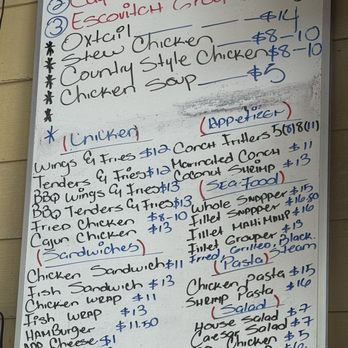 ③ Escovitch
* Oxtail $14
* Stew Chicken $8-10
* Country Style Chicken $8-10
* Chicken Soup $5
*
* (Chicken)
Wings & Fries $12
Tenders & Fries $12
BBQ Wings & Fries $13
BBQ Tenders & Fries $13
Fried Chicken $8-10
Cajun Chicken $13
(Sandwiches)
Chicken Sandwich $11
Fish Sandwich $13
Chicken Wrap $11
Fish Wrap $13
Hamburger $11.50
Add Cheese $1
(Appetizer)
Conch Fritters 5(6) 8(11)
Marinated Conch $11
Coconut Shrimp $13
(Sea Food)
Whole Snapper $15
Fillet Snapper
Fillet Mahi Mahi $16
Fillet Grouper $13
Fried, Grilled, Black.
Steam
(Pasta)
Chicken Pasta $15
Shrimp Pasta $16
(Salad)
House Salad $7
Caesar Salad $7
Chicken $5